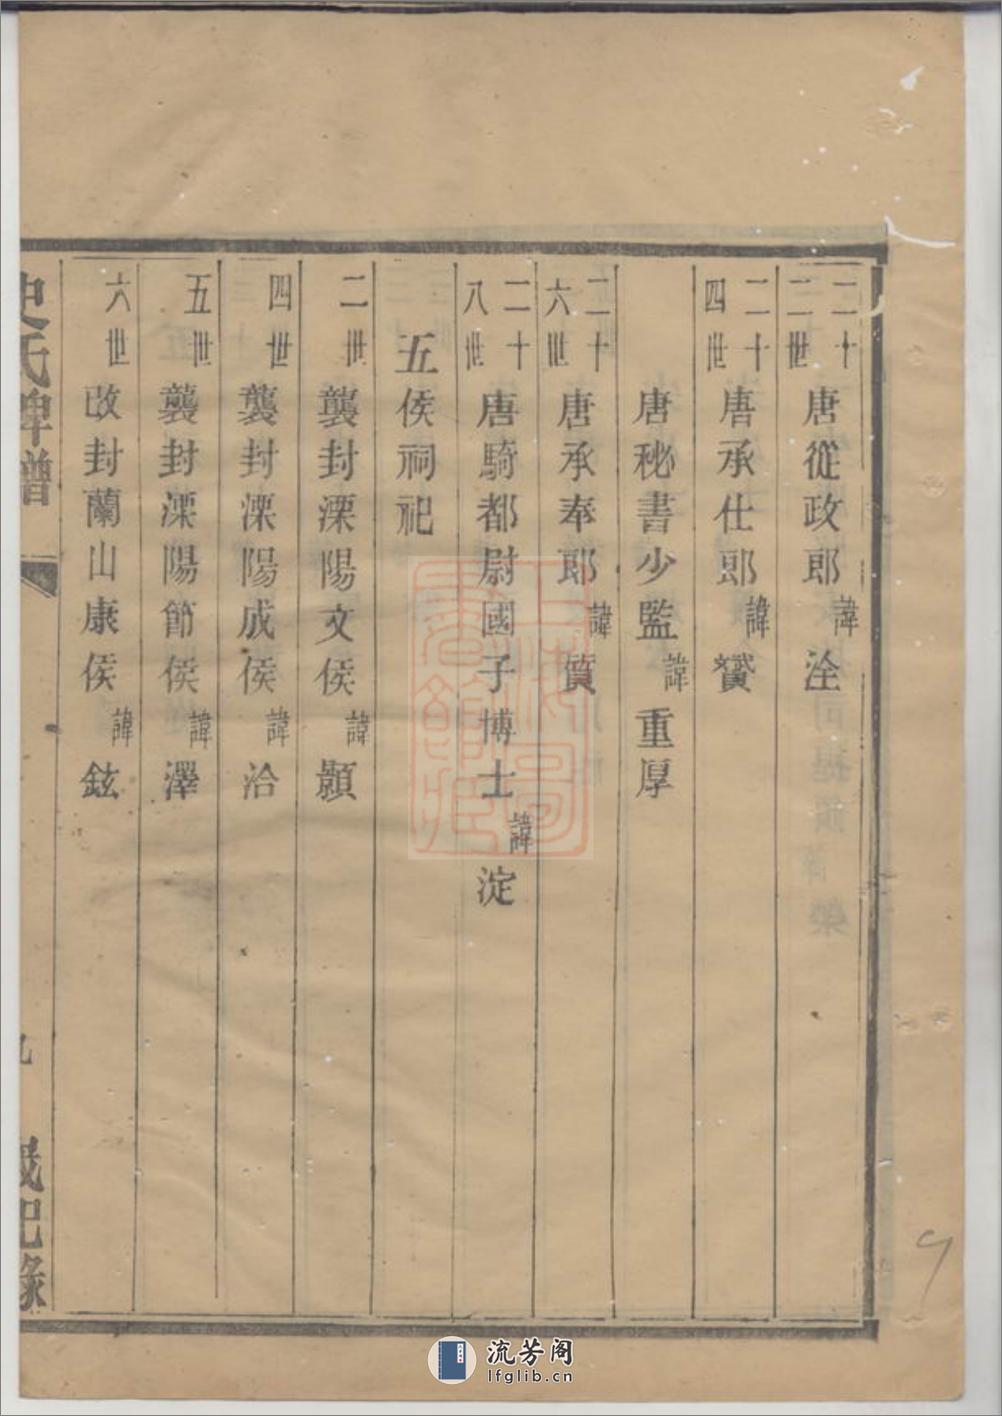 二十二世唐從政郎諱洤
二十四世唐承仕郎諱贇
唐秘書少監諱重厚
二十六世唐承奉郎諱質
二十八世唐騎都尉國子博士諱淀
五侯祠祀
二世襲封溧陽文侯諱顥
四世襲封溧陽成侯諱洽
五世襲封溧陽節侯諱澤
六世改封蘭山康侯諱鉉
史氏碑譜
九
流芳阁
lfglib.cn